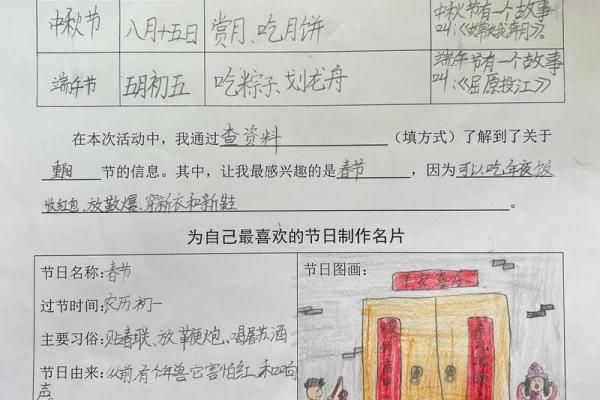 中秋节 八月十五日 赏月、吃月饼 中秋节有一个故事
叫:《嫦娥奔月》。
端午节 五月初五 吃粽子、划龙舟 端午节有一个故事
叫:《屈原投江》
在本次活动中，我通过查资料（填方式）了解到了关于
节的信息。其中，让我最感兴趣的是春节，因为可以吃年夜饭
收红包、放鞭爆、穿新衣和新鞋。
为自己最喜欢的节日制作名片
节日名称:春节
过节时间:农历初一
主要习俗:贴春联、放鞭炮、喝屠苏酒
节日由来:从前有个年兽它害怕红和响
声
节日图画：